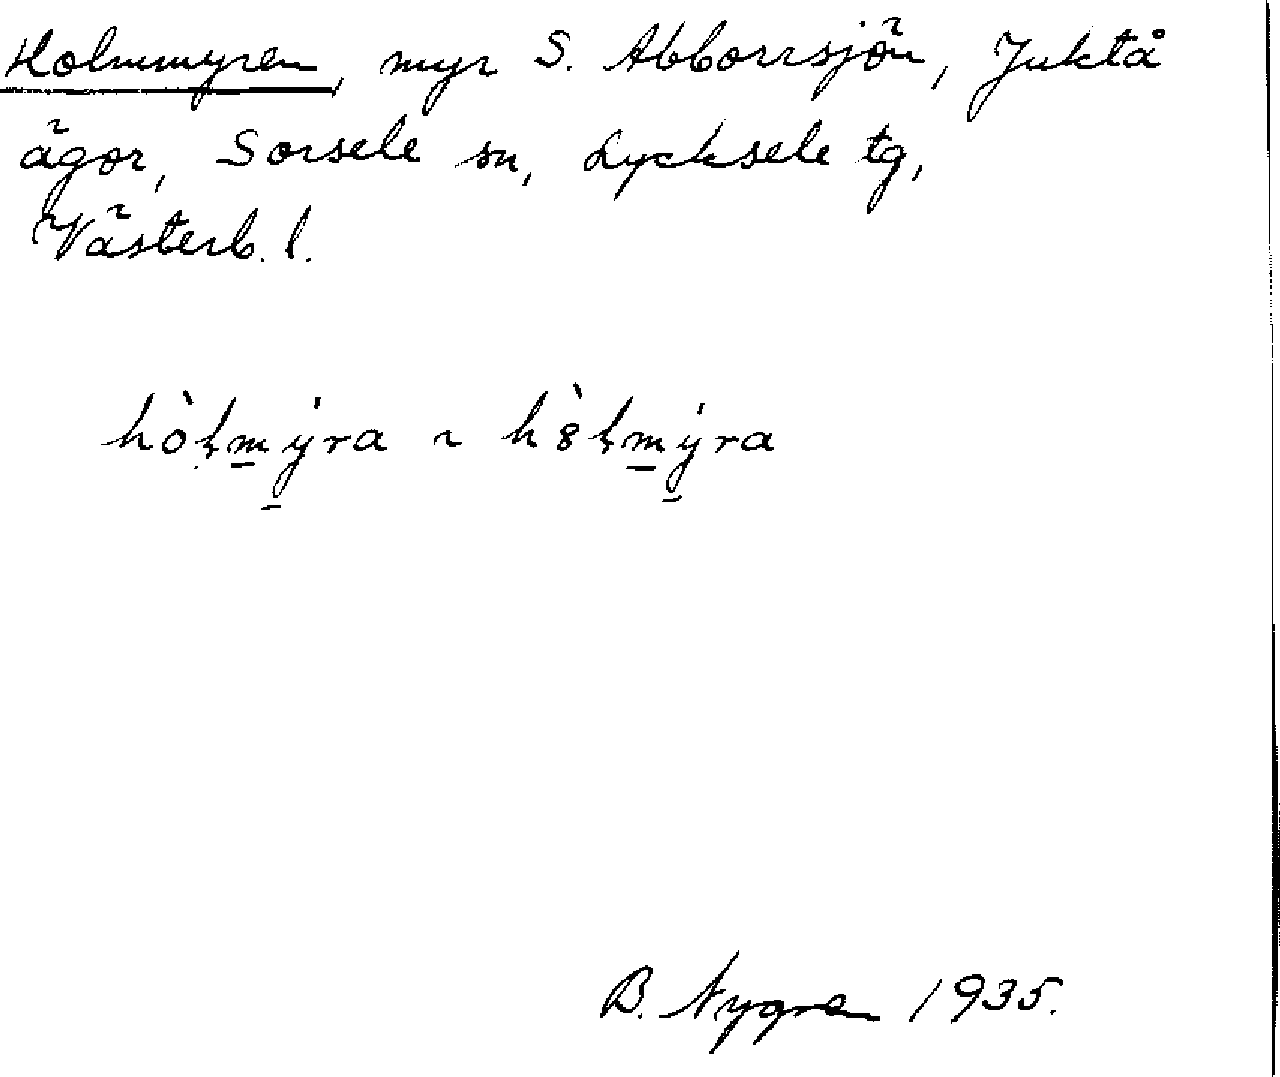 Holmmyren, myr S. Abborrsjön, Juktå
ägor, Sorsele sn, Lycksele tg,
Västerb. l.
hòḷm̲ý̲ra ~ hȣ̀ḷm̲ý̲ra
B. Nygren 1935.